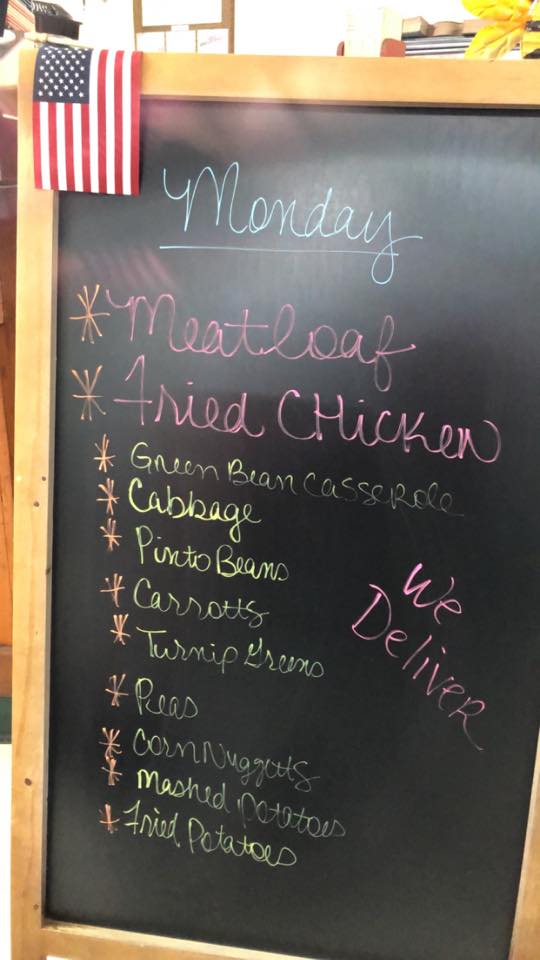 Monday
* Meatloaf
* Fried Chicken
* Green Bean Casserole
* Cabbage
* Pinto Beans
* Carrotts
* Turnip Greens
* Peas
* Corn Nuggetts
* Mashed Potatoes
* Fried Potatoes
We
Deliver